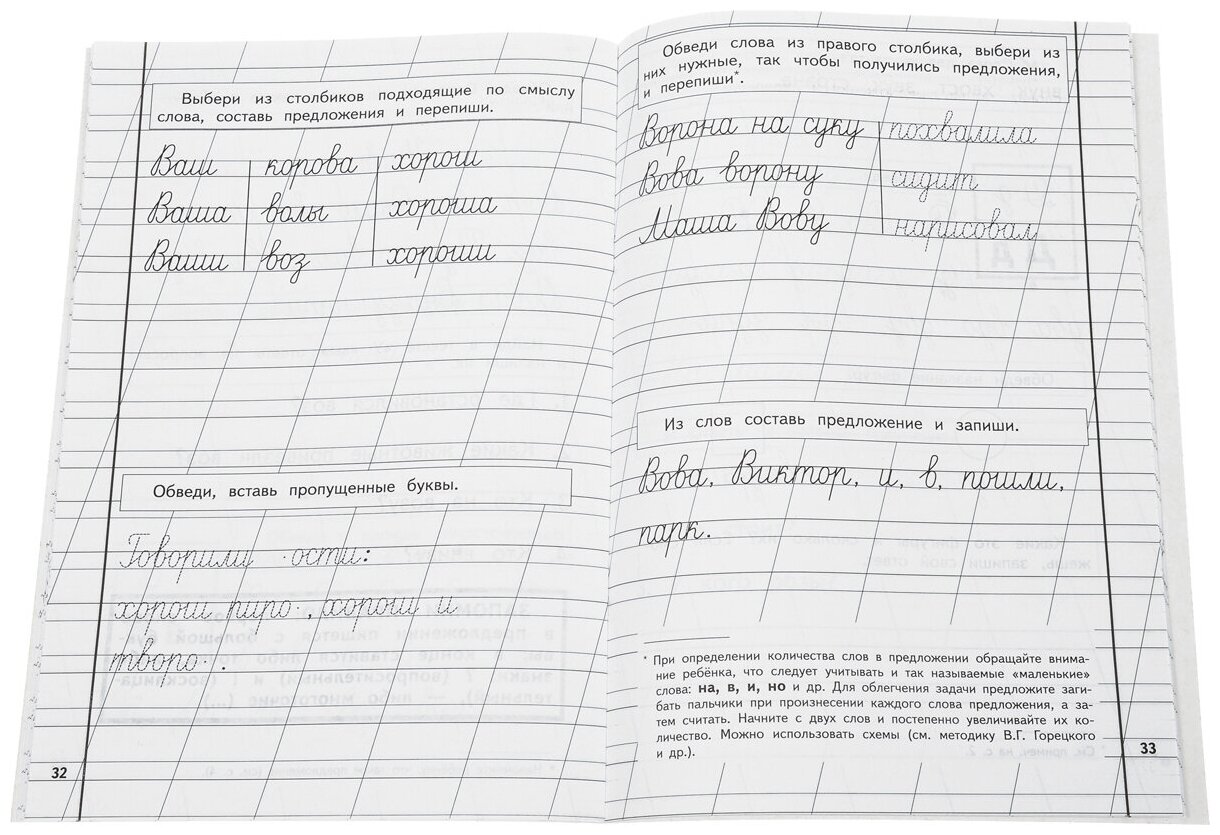 Выбери из столбиков подходящие по смыслу
слова, составь предложения и перепиши.
Ваш корова хорош
Ваша волы хороша
Ваши воз хороши
Обведи, вставь пропущенные буквы.
Говорили ·ости:
хорош пиро·, хорош и
творо·.
32
Обведи слова из правого столбика, выбери из
них нужные, так чтобы получились предложения,
и перепиши*.
Ворона на суку похвалила
Вова ворону сидит
Маша Вову нарисовал
Из слов составь предложение и запиши.
Вова, Виктор, и, в, пошли,
парк.
* При определении количества слов в предложении обращайте внима-
ние ребёнка, что следует учитывать и так называемые «маленькие»
слова: на, в, и, но и др. Для облегчения задачи предложите заги-
бать пальчики при произнесении каждого слова предложения, а за-
тем считать. Начните с двух слов и постепенно увеличивайте их ко-
личество. Можно использовать схемы (см. методику В.Г. Горецкого
и др.).
33